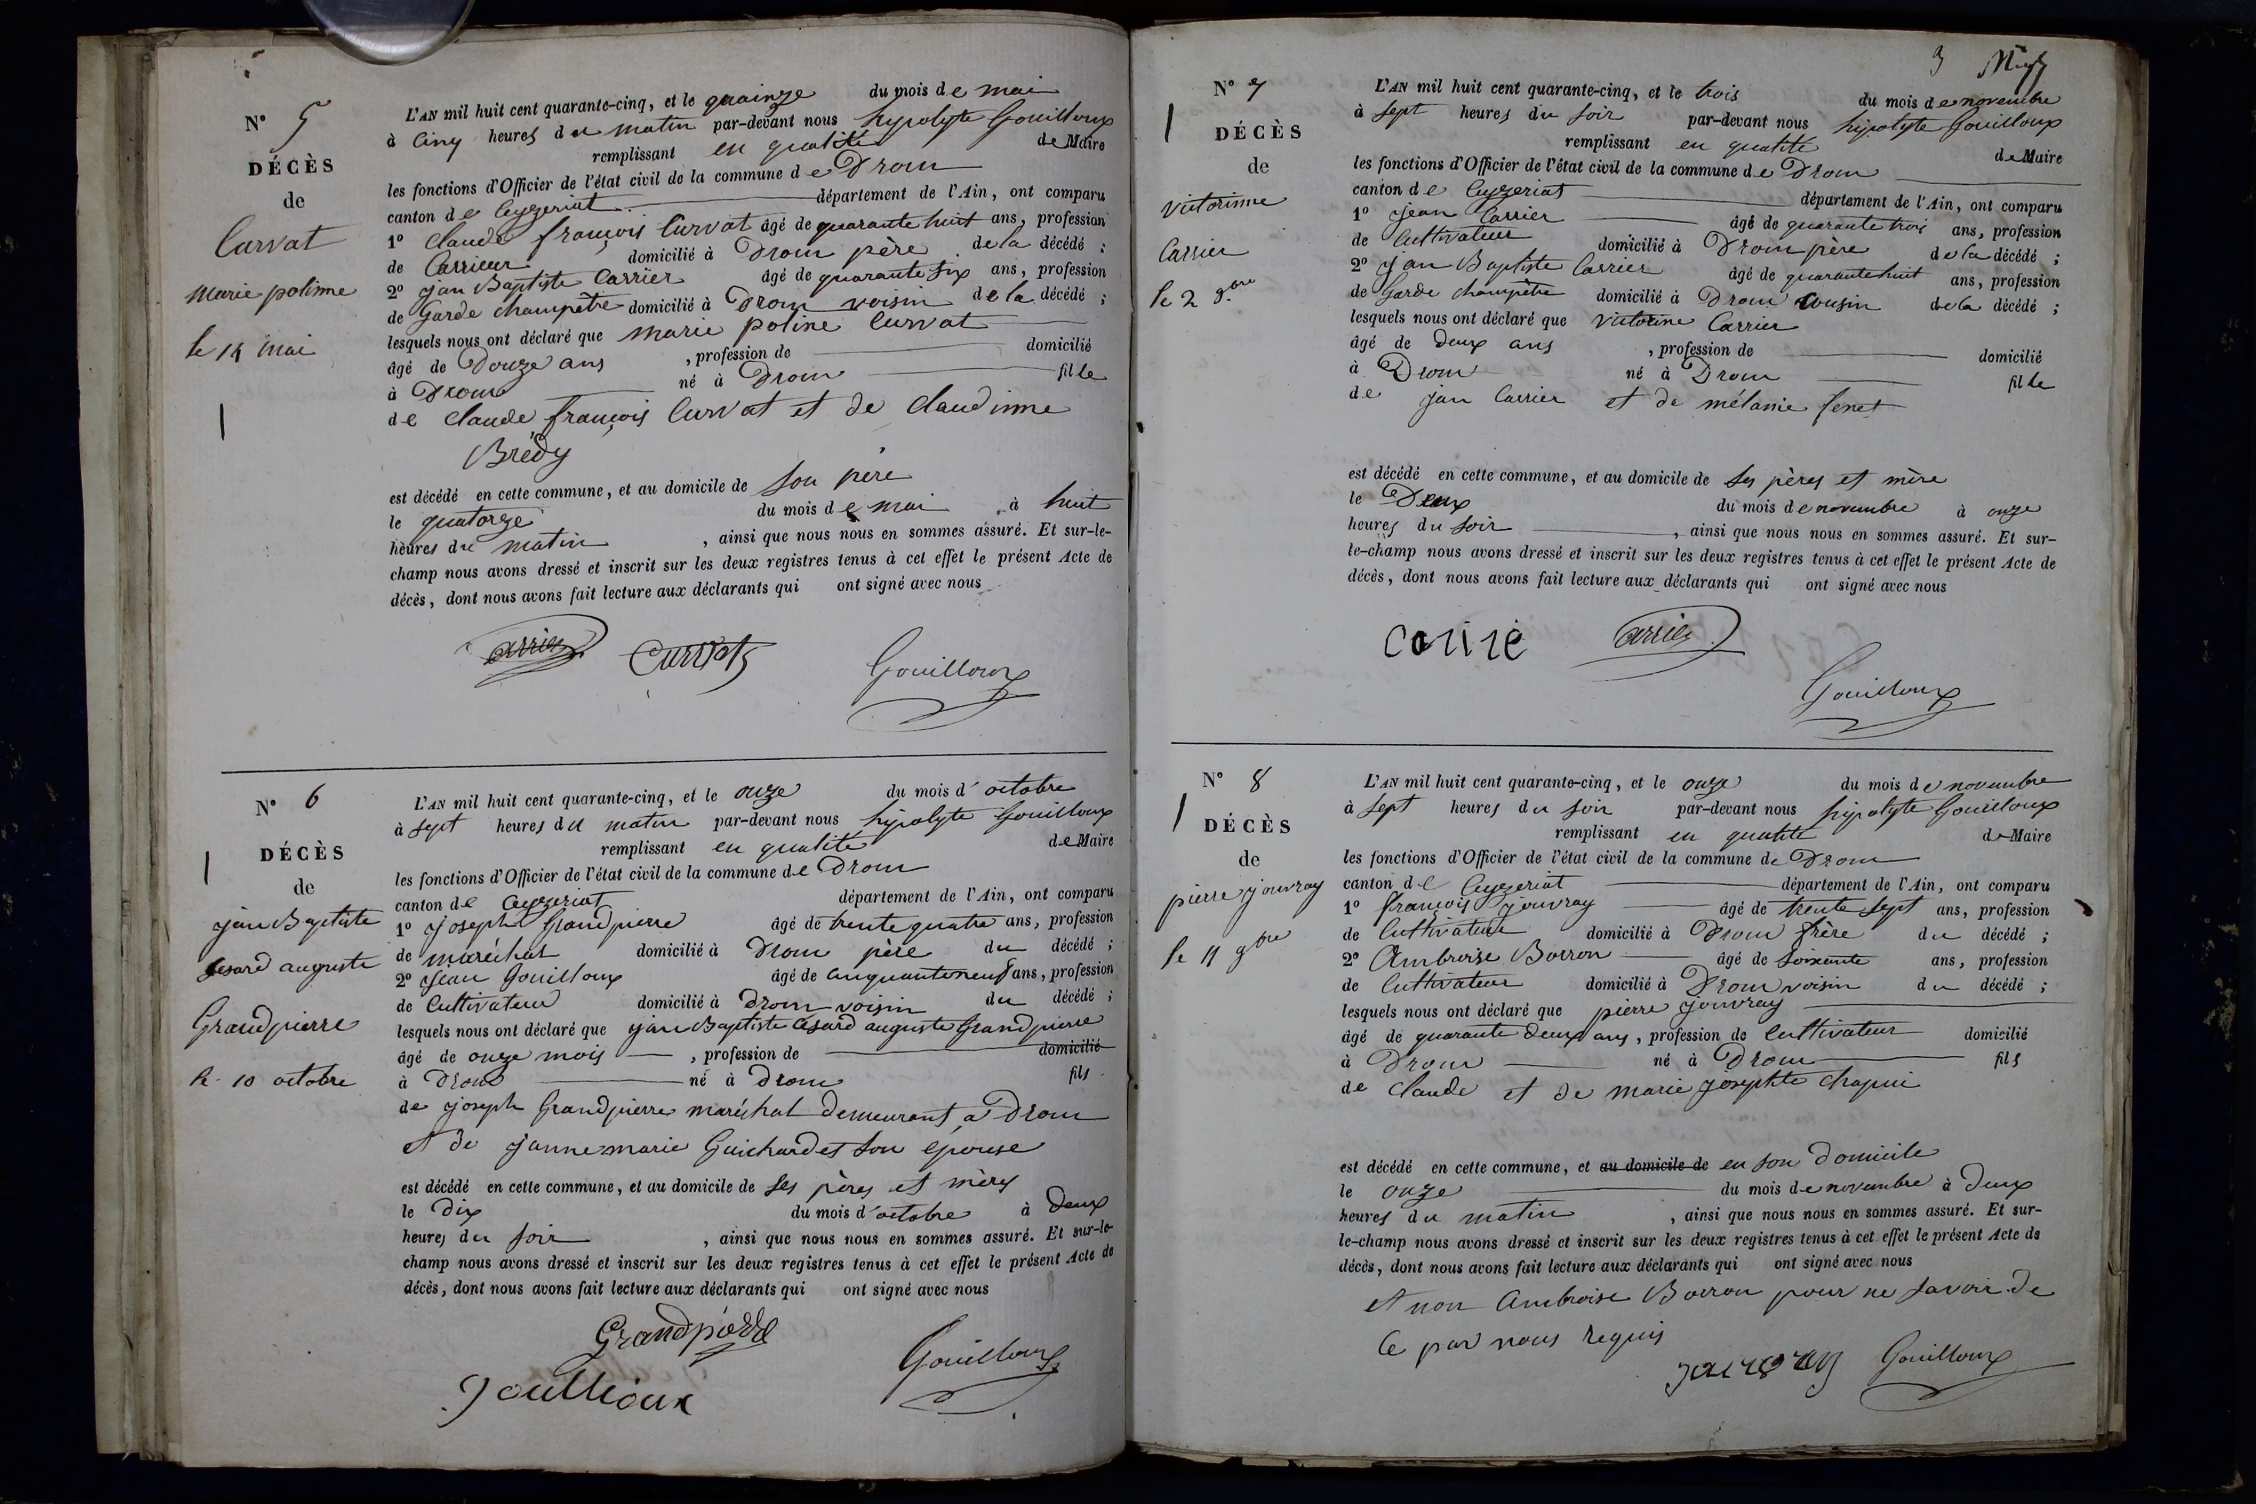 N° 5
DÉCÈS
de
Curvat
marie poline
le 14 mai
L'AN mil huit cent quarante-cinq, et le quainze du mois de mai
à cinq heures du matin par-devant nous hypolyte Gouilloux
remplissant en qualité de Maire
les fonctions d'Officier de l'état civil de la commune de Drom
canton de Ceyzeriat département de l'Ain, ont comparu
1° Claude françois Curvat âgé de quarante huit ans, profession
de Carrieur domicilié à Drom père de la décédé ;
2° jan Baptiste Carrier âgé de quarante six ans, profession
de Garde champêtre domicilié à Drom voisin de la décédé ;
lesquels nous ont déclaré que marie poline Curvat
âgé de Douze ans , profession de domicilié
à Drom né à Drom fille
de Claude françois Curvat et de Claudinne
Brédy
est décédé en cette commune, et au domicile de son père
le quatorze du mois de mai à huit
heures du matin , ainsi que nous nous en sommes assuré. Et sur-le-
champ nous avons dressé et inscrit sur les deux registres tenus à cet effet le présent Acte de
décès, dont nous avons fait lecture aux déclarants qui ont signé avec nous
Carrier Curvat Gouilloux
N° 6
DÉCÈS
de
jan Baptiste
Cesard auguste
Grandpierre
le 10 octobre
L'AN mil huit cent quarante-cinq, et le onze du mois d'octobre
à sept heures du matin par-devant nous hypolyte Gouilloux
remplissant en qualité de Maire
les fonctions d'Officier de l'état civil de la commune de Drom
canton de Ceyzeriat département de l'Ain, ont comparu
1° joseph Grandpierre âgé de trente quatre ans, profession
de maréchat domicilié à Drom père du décédé ;
2° jean Gouilloux âgé de cinquante neuf ans, profession
de Cultivateur domicilié à Drom voisin du décédé ;
lesquels nous ont déclaré que jan Baptiste Cesard auguste Grandpierre
âgé de onze mois , profession de domicilié
à Drom né à Drom fils
de joseph Grandpierre maréchat demeurant à Drom
et de janne marie Guichardet son epouse
est décédé en cette commune, et au domicile de ses pères et mères
le Dix du mois d'octobre à Deux
heures du soir , ainsi que nous nous en sommes assuré. Et sur-le-
champ nous avons dressé et inscrit sur les deux registres tenus à cet effet le présent Acte de
décès, dont nous avons fait lecture aux déclarants qui ont signé avec nous
Grandpierre
Gouillioux Gouilloux
3
N° 7
DÉCÈS
de
Victorinne
Carrier
le 2 9bre
L'AN mil huit cent quarante-cinq, et le trois du mois de novembre
à sept heures du soir par-devant nous hipolyte Gouilloux
remplissant en qualité de Maire
les fonctions d'Officier de l'état civil de la commune de Drom
canton de Ceyzeriat département de l'Ain, ont comparu
1° jean Carrier âgé de quarante trois ans, profession
de Cultivateur domicilié à Drom père de la décédé ;
2° jan Baptiste Carrier âgé de quarante huit ans, profession
de Garde champêtre domicilié à Drom cousin de la décédé ;
lesquels nous ont déclaré que Victorine Carrier
âgé de deux ans , profession de domicilié
à Drom né à Drom fille
de jan Carrier et de mélanie fenet
est décédé en cette commune, et au domicile de ses pères et mère
le Deux du mois de novembre à onze
heures du soir , ainsi que nous nous en sommes assuré. Et sur-
le-champ nous avons dressé et inscrit sur les deux registres tenus à cet effet le présent Acte de
décès, dont nous avons fait lecture aux déclarants qui ont signé avec nous
carire Carrier
Gouilloux
N° 8
DÉCÈS
de
pierre jouvray
le 11 9bre
L'AN mil huit cent quarante-cinq, et le onze du mois de novembre
à sept heures du soir par-devant nous hipolyte Gouilloux
remplissant en qualité de Maire
les fonctions d'Officier de l'état civil de la commune de Drom
canton de Ceyzeriat département de l'Ain, ont comparu
1° françois jouvray âgé de trente sept ans, profession
de Cultivateur domicilié à Drom frère du décédé ;
2° Ambroise Borron âgé de soixante ans, profession
de Cultivateur domicilié à Drom voisin du décédé ;
lesquels nous ont déclaré que pierre jouvray
âgé de quarante deux ans , profession de Cultivateur domicilié
à Drom né à Drom fils
de Claude et de marie josephte chapui
est décédé en cette commune, et au domicile de en son Domicile
le onze du mois de novembre à Deux
heures du matin , ainsi que nous nous en sommes assuré. Et sur-
le-champ nous avons dressé et inscrit sur les deux registres tenus à cet effet le présent Acte de
décès, dont nous avons fait lecture aux déclarants qui ont signé avec nous
et non Ambroise Borron pour ne savoir de
ce par nous requis
Gouilloux